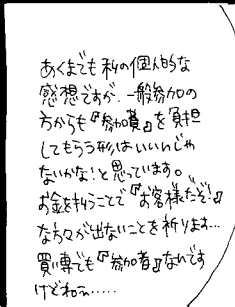 あくまでも私の個人的な
感想ですが、一般参加の
方からも『参加費』を負担
してもらう形はいいんじゃ
ないかな!と思っています。
お金を払うことで『お客様だぞ!』
な方々が出ないことを祈ります…
買い専でも『参加者』なんです
けどねぇ……